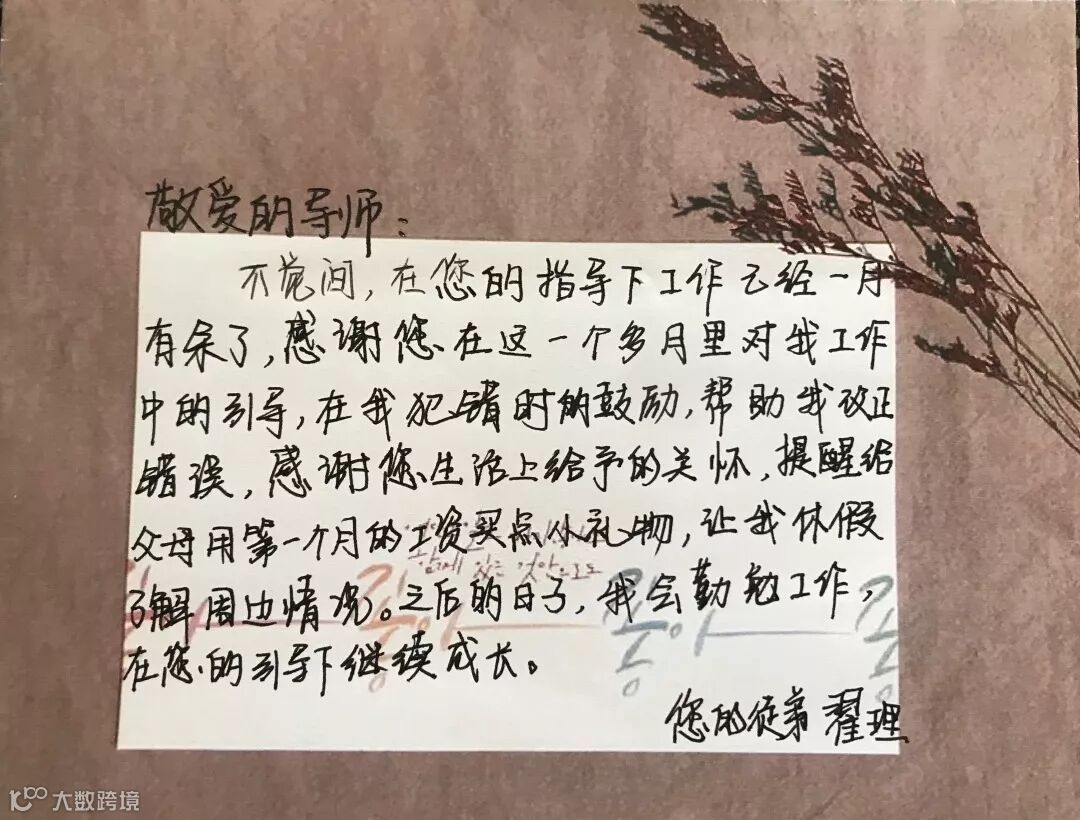 敬爱的导师：
不觉间，在您的指导下工作已经一月
有余了，感谢您在这一个多月里对我工作
中的引导，在我犯错时的鼓励，帮助我改正
错误，感谢您生活上给予的关怀，提醒给
父母用第一个月的工资买点小礼物，让我休假
了解周边情况。之后的日子，我会勤勉工作，
在您的引导下继续成长。
您的徒弟 翟理
함께 있는 것만으로도
좋아
좋아
좋
大数跨境